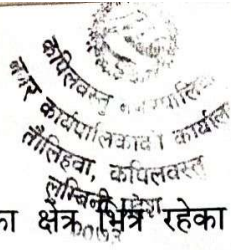 कपिलवस्तु नगरपालिका
नगर कार्यपालिकाको कार्यालय
तौलिहवा, कपिलवस्तु
लुम्बिनी प्रदेश
का क्षेत्र भित्र रहेका